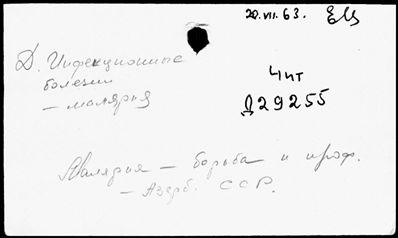 20.VII.63. ЕЦ
Д. Инфекционные
болезни
— малярия
Чит
Д29255
Малярия — борьба и проф.
— Азерб. ССР.